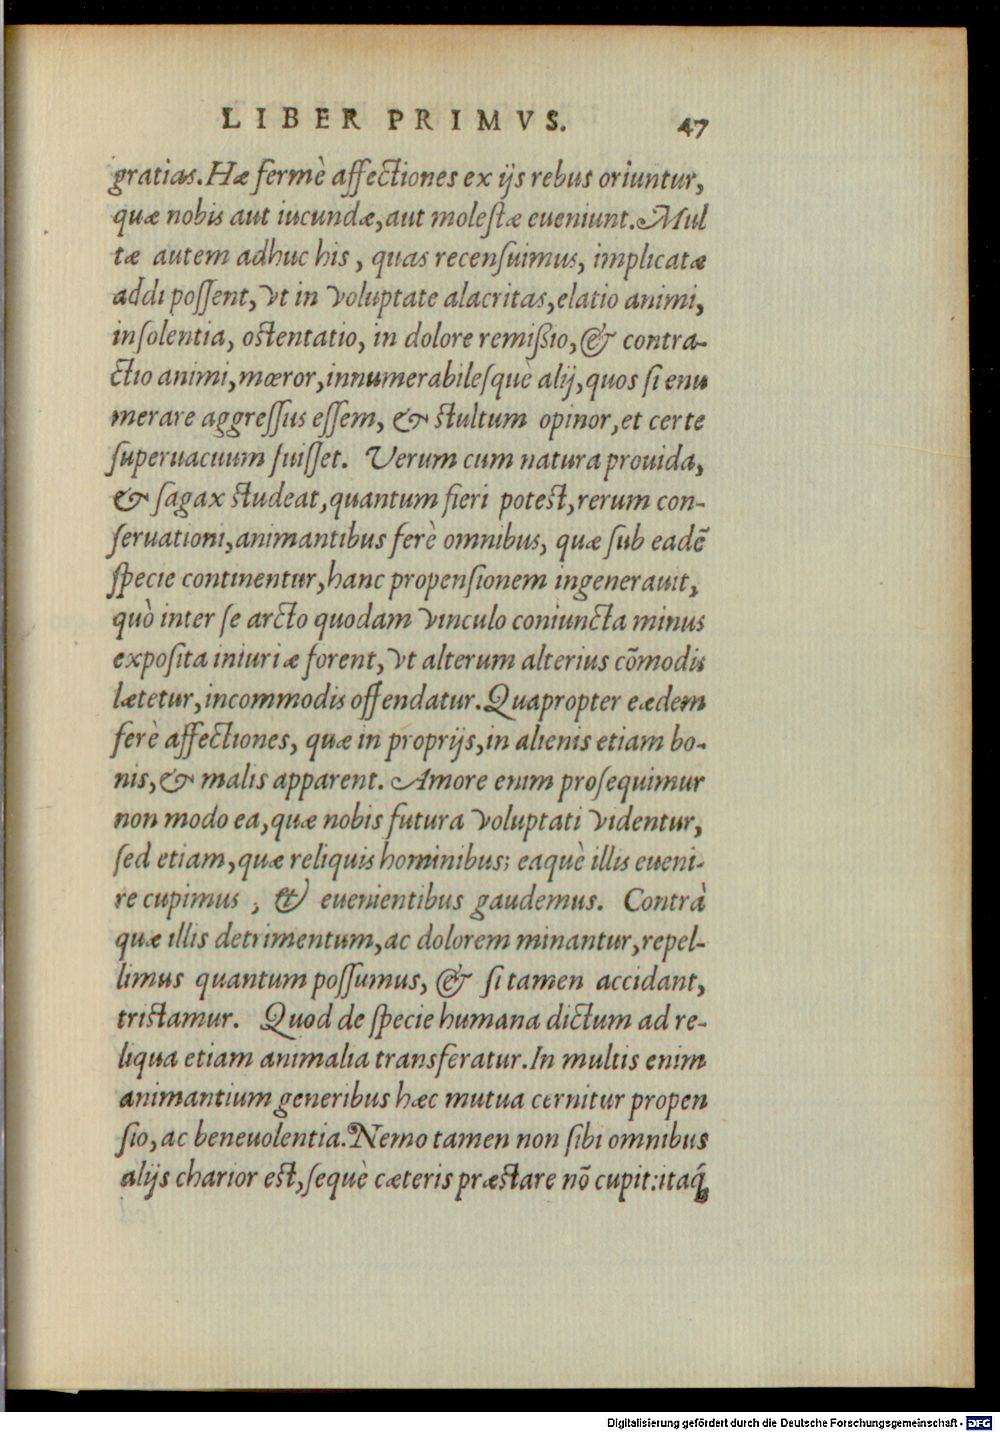 LIBER PRIMVS. 47
gratias. Hæ fermè affectiones ex ijs rebus oriuntur,
quæ nobis aut iucundæ, aut molestæ eueniunt. Mul
tæ autem adhuc his, quas recensuimus, implicatæ
addi possent, vt in voluptate alacritas, elatio animi,
insolentia, ostentatio, in dolore remißio, & contra-
ctio animi, mœror, innumerabilesquè alij, quos si enu
merare aggressus essem, & stultum opinor, et certe
superuacuum fuisset. Verum cum natura prouida,
& sagax studeat, quantum fieri potest, rerum con-
seruationi, animantibus ferè omnibus, quæ sub eadē
specie continentur, hanc propensionem ingenerauit,
quò inter se arcto quodam vinculo coniuncta minus
exposita iniuriæ forent, vt alterum alterius cōmodis
lætetur, incommodis offendatur. Quapropter eædem
ferè affectiones, quæ in proprijs, in alienis etiam bo-
nis, & malis apparent. Amore enim prosequimur
non modo ea, quæ nobis futura voluptati videntur,
sed etiam, quæ reliquis hominibus; eaquè illis eueni-
re cupimus, & euenientibus gaudemus. Contrà
quæ illis detrimentum, ac dolorem minantur, repel-
limus quantum possumus, & si tamen accidant,
tristamur. Quod de specie humana dictum ad re-
liqua etiam animalia transferatur. In multis enim
animantium generibus hæc mutua cernitur propen
sio, ac beneuolentia. Nemo tamen non sibi omnibus
alijs charior est, sequè cæteris præstare nō cupit: itaq́;
Digitalisierung gefördert durch die Deutsche Forschungsgemeinschaft - DFG